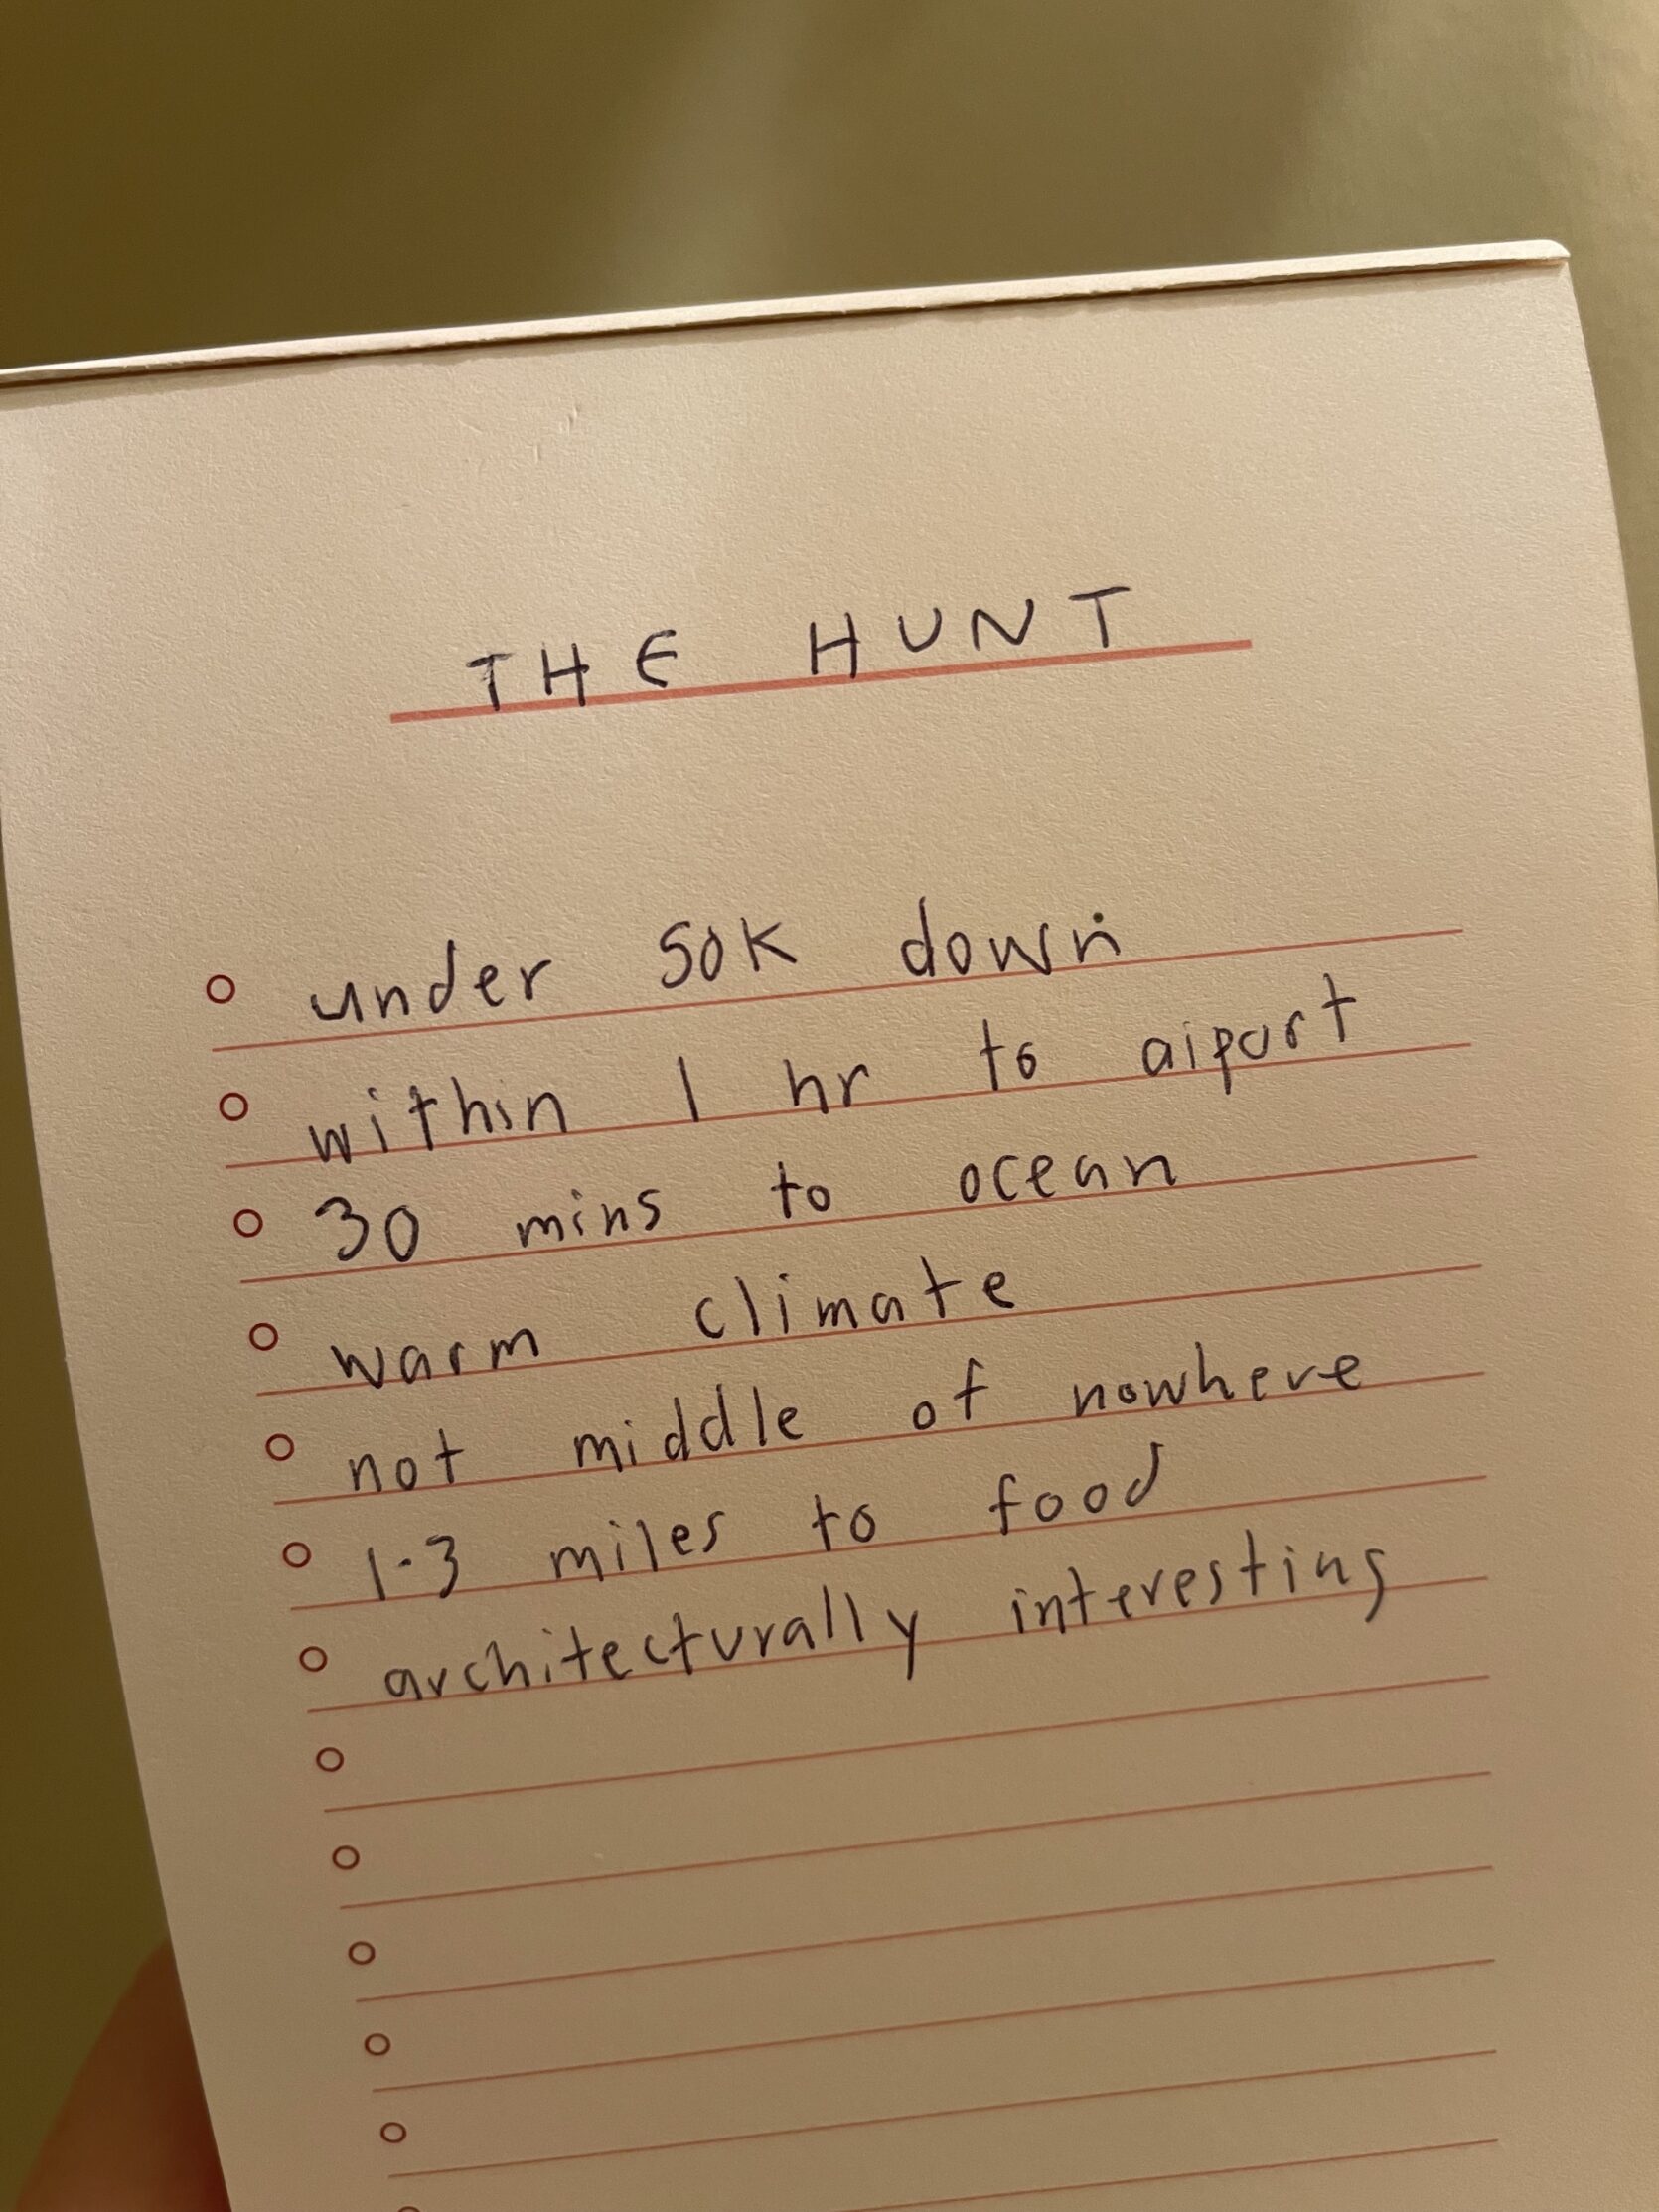 THE HUNT
under 50K down
within 1 hr to aiport
30 mins to ocean
warm climate
not middle of nowhere
1-3 miles to food
architecturally interesting